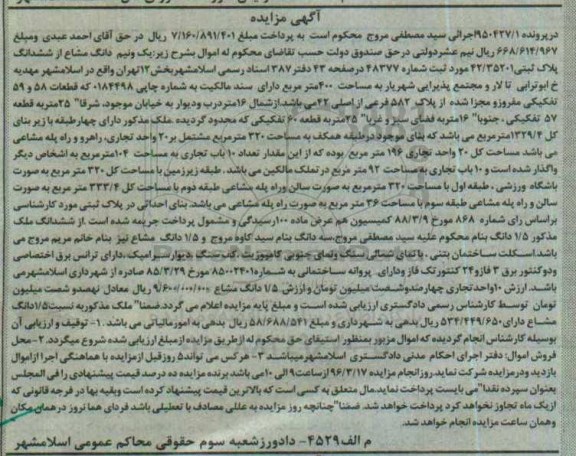 آگهی مزایده
درپرونده ۹۵۰۴۲۷/۱اجرائی سید مصطفی مروج محکوم است به پرداخت مبلغ ۷/۱۶۰/۸۹۱/۴۰۱ ریال در حق آقای احمد عبدی ومبلغ
۶۶۸/۶۱۴/۹۶۷ ریال نیم عشردولتی درحق صندوق دولت حسب تقاضای محکوم له اموال بشرح زیر:یک ونیم دانگ مشاع از ششدانگ
پلاک ثبتی ۴۲/۳۵۲۰۱ مورد ثبت شماره ۴۸۳۷۷ درصفحه ۴۳ دفتر ۳۸۷ اسناد رسمی اسلامشهربخش۱۲تهران واقع در اسلامشهر مهدیه
خ ابوترابی تالار و مجتمع پذیرایی شهریار به مساحت ۴۰۰متر مربع دارای سند مالکیت به شماره چاپی ۰۱۸۴۴۹۸ که قطعات ۵۸ و ۵۹
تفکیکی مفروزو مجزا شده از پلاک ۵۸۲ فرعی از اصلی ۴۲می باشد.ازشمال ۱۶متردرب ودیوار به خیابان موجود، شرقا" ۲۵متربه قطعه
۵۷ تفکیکی ، جنوبا" ۱۶متربه فضای سبز و غربا" ۲۵متربه قطعه ۶۰ تفکیکی که محدود گردیده علک مذکور دارای چهارطبقه با زیر بنای
کل ۱۳۲۹/۴مترمربع می باشد که بنای موجود درطبقه همکف به مساحت ۳۲۰ مترمربع مشتمل بر۲۰ واحد تجاری، راهرو و راه پله مشاعی
می باشد مساحت کل ۲۰ واحد تجاری ۱۹۶ متر مربع بوده که از این مقدار تعداد ۱۰ باب تجاری به مساحت ۱۰۴مترمربع به اشخاص دیگر
واگذار شده است و ۱۰ باب تجاری به مساحت ۹۲ متر مربع در تملک مالکین می باشد . طبقه زیرزمین با مساحت کل ۳۲۰ متر مربع به صورت
باشگاه ورزشی ، طبقه اول با مساحت ۳۲۰ مترمربع به صورت سالن وراه پله مشاعی طبقه دوم با مساحت کل ۳۳۳/۴ متر مربع به صورت
سالن و راه پله مشاعی طبقه سوم با مساحت ۳۶ متر مربع به صورت راه پله مشاعی می باشد. بنای احداثی در پلاک ثبتی مورد کارشناسی
براساس رای شماره ۸۶۸ مورخ ۸۸/۳/۹ کمیسیون هم عرض ماده ۱۰۰رسیدگی و مشمول پرداخت جریمه شده است .از ششدانگ ملک
مذکور ۱/۵ دانگ بنام محکوم علیه سید مصطفی مروج،سه دانگ بنام سید کاوه مروج و ۱/۵ دانگ مشاع نیز بنام خانم مریم مروج می
باشد.اسکلت ساختمان بتنی ، با نمای شمالی سنگ ونمای جنوبی کامپوزیت ،کف سنگ ،دیوارسرامیک ،دارای ترانس برق اختصاصی
ودوکنتور برق ۳ فازو۲۴ کنتورتک فاز ودارای پروانه ساختمانی به شماره ۸۵۰۰۲۴۰۱ مورخ ۸۵/۳/۲۹ صادره از شهرداری اسلامشهرمی
باشد. ارزش ۱۰واحدتجاری چهارصدوشصت میلیون تومان وارزش ۱/۵ دانگ مشاع ۹/۶۰۰/۰۰۰/۰۰۰ ریال معادل نهصدو شصت میلیون
تومان توسط کارشناس رسمی دادگستری ارزیابی شده است و مبلغ پایه مزایده اعلام می گردد.ضمنا" ملک مذکوربه نسبت۱/۵دانگ
مشاع دارای ۵۳۴/۴۴۹/۶۵۰ ریال بدهی به شهرداری و مبلغ ۵۸/۶۸۸/۵۴۱ ریال بدهی به امورمالیاتی می باشد .۱- توقیف و ارزیابی آن
بوسیله کارشناس انجام گردیده که اموال مزبور بمنظور استیفای حق محکوم له ازطریق مزایده ازمبلغ ارزیابی شده شروع میگردد.۲-محل
فروش اموال: دفتر اجرای احکام مدنی دادگستری اسلامشهرمیباشد ۳- هرکس می تواند۵ روزقبل ازمزایده با هماهنگی اجرا ازاموال
بازدید ودرمزایده شرکت نماید.روزانجام مزایده ۹۶/۳/۱۷ ازساعت ۹ الی ۱۰می باشد برنده مزایده ده درصد قیمت پیشنهادی را فی المجلس
بعنوان سپرده نقدا" می بایست پرداخت نماید.مال متعلق به کسی است که بالاترین قیمت پیشنهاد کرده است وبقیه بها در فرجه قانونی که
از یک ماه تجاوز نخواهد کرد پرداخت خواهد شد. ضمنا"چنانچه روز مزایده به عللی مصادف با تعطیلی باشد فردای هما نروز درهمان مکان
وهمان ساعت مزایده انجام خواهد شد.
م الف۴۵۲۹- دادورزشعبه سوم حقوقی محاکم عمومی اسلامشهر